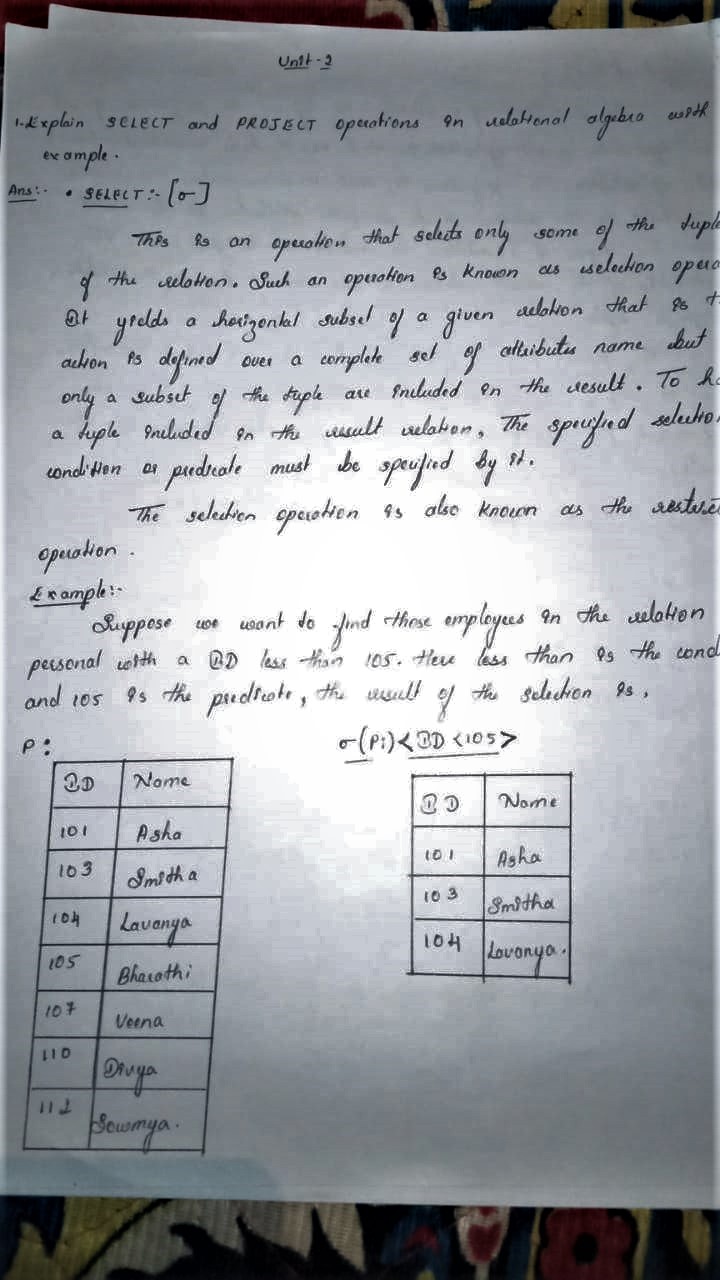 Unit-2
1. Explain SELECT and PROJECT operations in relational algebra with
example.
Ans:- • SELECT:- [σ]
This is an operation that selects only some of the tuple
of the relation. Such an operation is known as selection opera
It yields a horizontal subset of a given relation that is t
action is defined over a complete set of attributes name but
only a subset of the tuple are included in the result. To ha
a tuple included in the result relation, The specified selectio
condition or predicate must be specified by it.
The selection operation is also known as the restric
operation.
Example:-
Suppose we want to find those employees in the relation
personal with a ID less than 105. Here less than is the cond
and 105 is the predicate, the result of the selection is,
P:
σ(P:)<ID <105>
ID Name
101 Asha
103 Smitha
104 Lavanya
105 Bharathi
107 Veena
110 Divya
112 Sowmya.
ID Name
101 Asha
103 Smitha
104 Lavanya.